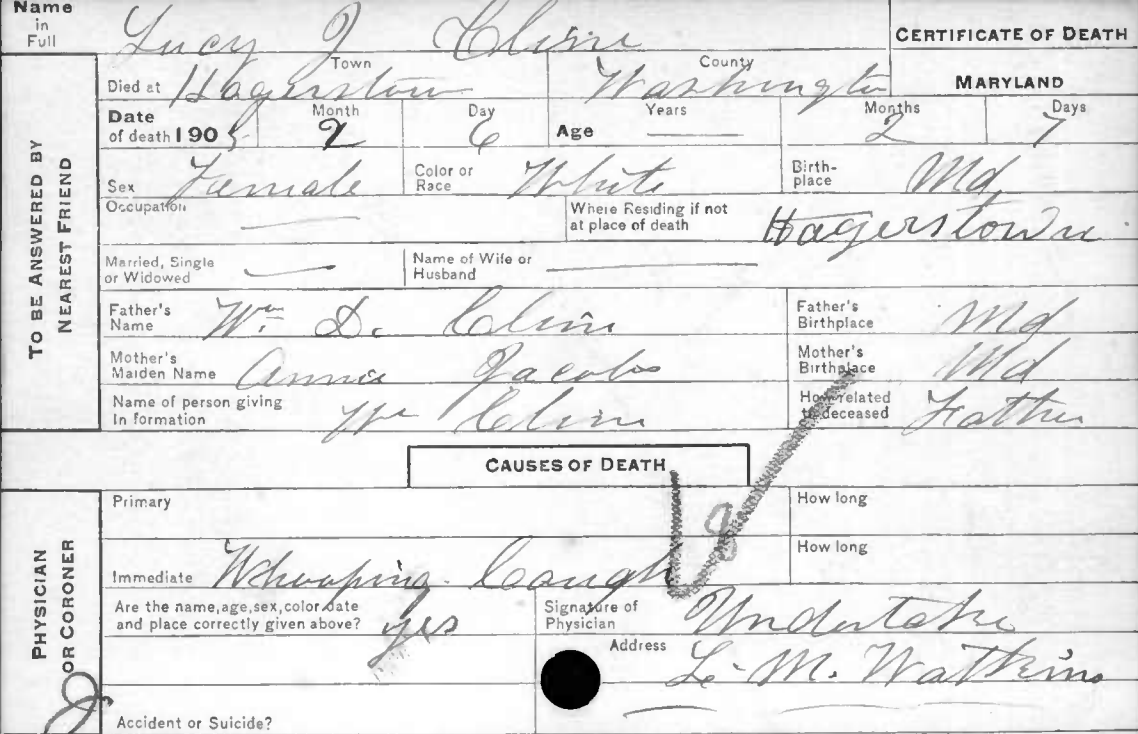 Name in Full Lucy J Cline
CERTIFICATE OF DEATH
TO BE ANSWERED BY NEAREST FRIEND
Died at Town Hagerstown County Washington
MARYLAND
Date of death 1905 Month 2 Day 6 Age Years — Months 2 Days 7
Sex Female Color or Race White Birth-place Md
Occupation — Where Residing if not at place of death Hagerstown
Married, Single or Widowed — Name of Wife or Husband —
Father's Name Wm. D. Cline Father's Birthplace Md
Mother's Maiden Name Annie Jacobs Mother's Birthplace Md
Name of person giving In formation Wm Cline How related to deceased Father
CAUSES OF DEATH
PHYSICIAN OR CORONER
Primary How long
8
Immediate Whooping Cough How long
Are the name, age, sex, color date and place correctly given above? yes Signature of Physician Undertaker
Address L. M. Watkins
Accident or Suicide?